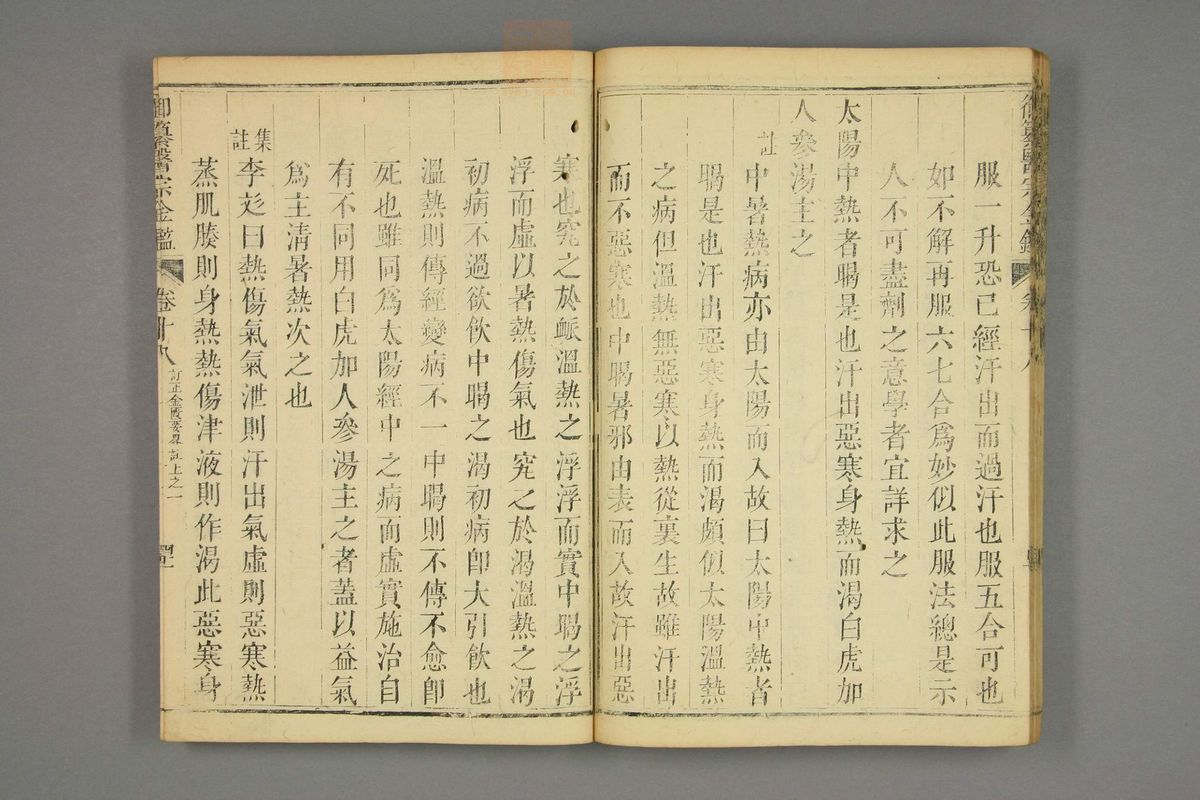 服一升恐已經汗出而過汗也服五合可也
如不解再服六七合爲妙似此服法總是示
人不可盡劑之意學者宜詳求之
太陽中熱者暍是也汗出惡寒身熱而渴白虎加
人參湯主之
註
中暑熱病亦由太陽而入故曰太陽中熱者
暍是也汗出惡寒身熱而渴頗似太陽溫熱
之病但溫熱無惡寒以熱從裏生故雖汗出
而不惡寒也中暍暑邪由表而入故汗出惡
寒也究之於脈溫熱之浮浮而實中暍之浮
浮而虛以暑熱傷氣也究之於渴溫熱之渴
初病不過欲飲中暍之渴初病即大引飲也
溫熱則傳經變病不一中暍則不傳不愈即
死也雖同爲太陽經中之病而虛實施治自
有不同用白虎加人參湯主之者蓋以益氣
爲主清暑熱次之也
集註
李彣曰熱傷氣氣泄則汗出氣虛則惡寒熱
蒸肌腠則身熱熱傷津液則作渴此惡寒身
御纂醫宗金鑑 卷十八 訂正金匱要畧註上之一